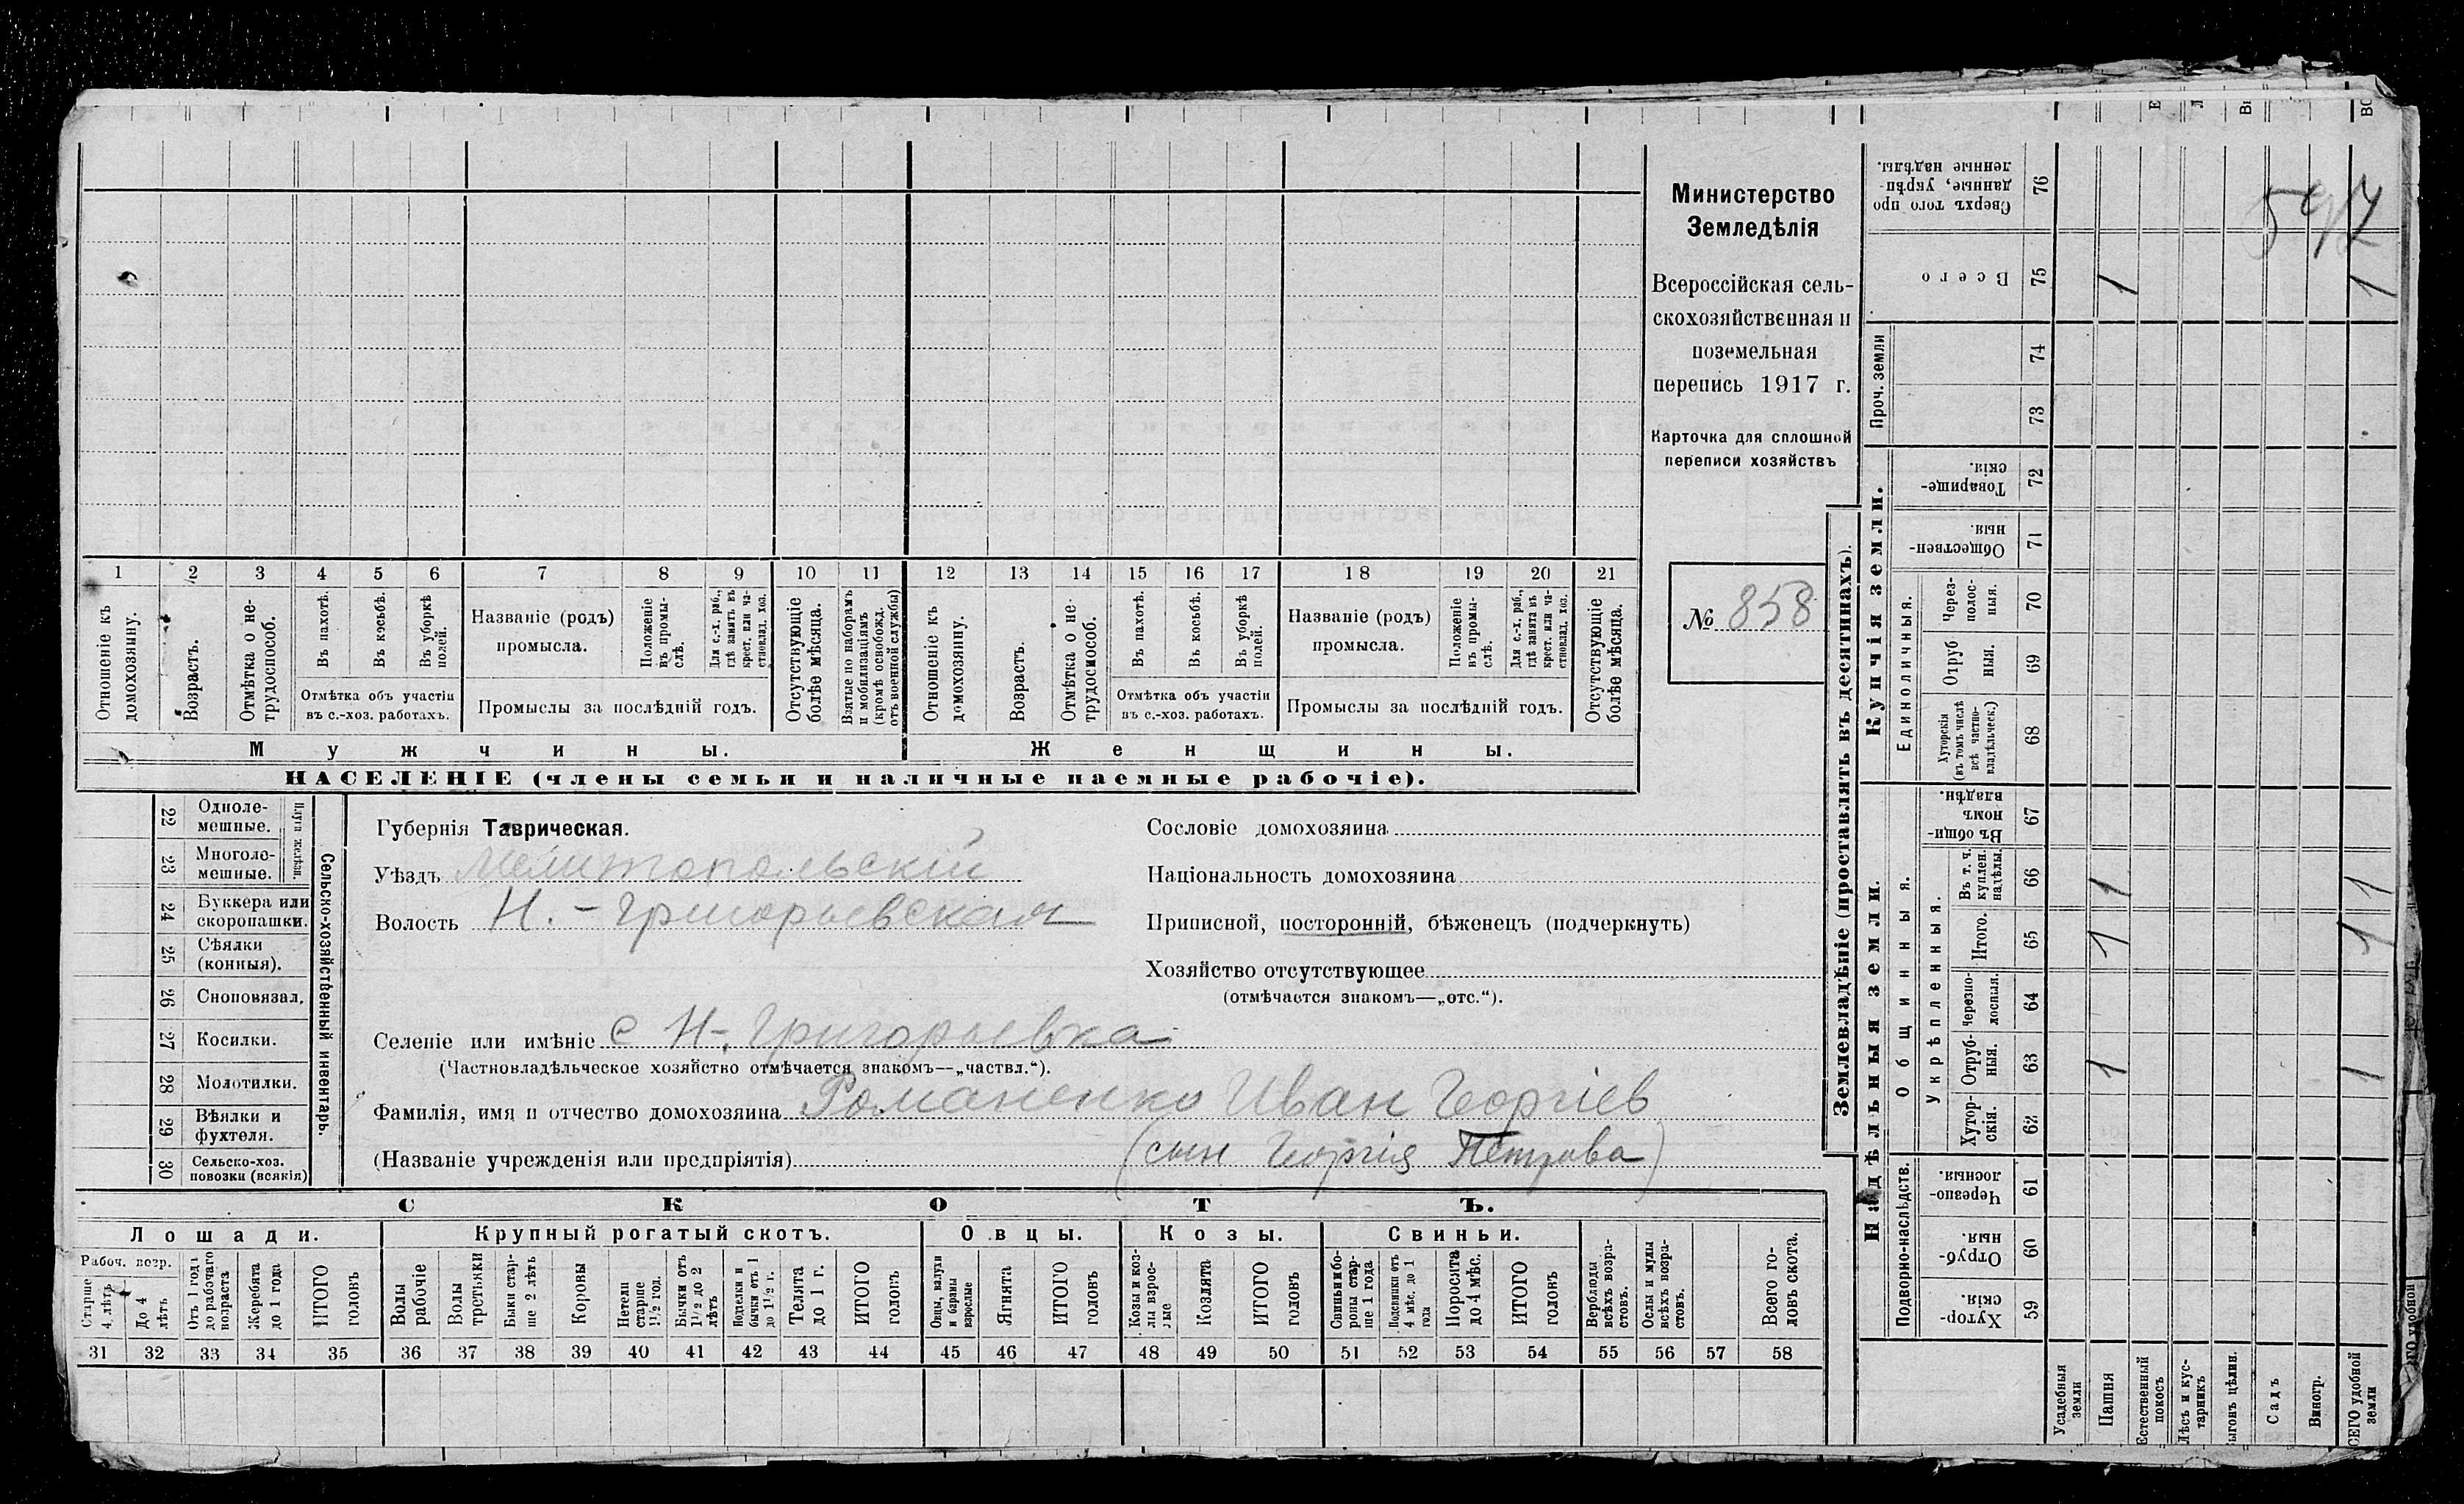 Министерство
Земледѣлія
Всероссійская сель-
скохозяйственная и
поземельная
перепись 1917 г.
Карточка для сплошной
переписи хозяйствъ
№ 858
1 2 3 4 5 6 7 8 9 10 11 12 13 14 15 16 17 18 19 20 21
Отношеніе къ домохозяину.
Возрастъ.
Отмѣтка о не-трудоспособ.
Въ пахотѣ.
Въ косьбѣ.
Въ уборкѣ полей.
Отмѣтка объ участіи
въ с.-хоз. работахъ.
Названіе (родъ)
промысла.
Положеніе въ промы-слѣ.
Для с.-х. раб., гдѣ занятъ въ крест. или ча-стновлад. хоз.
Промыслы за послѣдній годъ.
Отсутствующіе болѣе мѣсяца.
Взятые по наборамъ и мобилизаціямъ (кромѣ освобожд. отъ военной службы)
Отношеніе къ домохозяину.
Возрастъ.
Отмѣтка о не-трудоспособ.
Въ пахотѣ.
Въ косьбѣ.
Въ уборкѣ полей.
Отмѣтка объ участіи
въ с.-хоз. работахъ.
Названіе (родъ)
промысла.
Положеніе въ промы-слѣ.
Для с.-х. раб., гдѣ занята въ крест. или ча-стновлад. хоз.
Промыслы за послѣдній годъ.
Отсутствующіе болѣе мѣсяца.
Мужчины. Женщины.
НАСЕЛЕНІЕ (члены семьи и наличные наемные рабочіе).
22 Одноле-мешные.
23 Многоле-мешные.
Плуги желѣзн.
24 Буккера или скоропашки.
25 Сѣялки (конныя).
26 Сноповязал.
27 Косилки.
28 Молотилки.
29 Вѣялки и фухтеля.
30 Сельско-хоз. повозки (всякія)
Сельско-хозяйственный инвентарь.
Губернія Таврическая.
Уѣздъ Мелитопольскій
Волость Н.-Григорьевская
Селеніе или имѣніе с Н-Григорьевка
(Частновладѣльческое хозяйство отмѣчается знакомъ—„частвл.“).
Фамилія, имя и отчество домохозяина Романенко Иван Георгіев
(Названіе учрежденія или предпріятія) (сын Георгія Петрова)
Сословіе домохозяина
Національность домохозяина
Приписной, посторонній, бѣженецъ (подчеркнуть)
Хозяйство отсутствующее
(отмѣчается знакомъ—„отс.“).
СКОТЪ.
Лошади. Крупный рогатый скотъ. Овцы. Козы. Свиньи.
Рабоч. возр.
Старше 4 лѣтъ
До 4 лѣтъ
Отъ 1 года до рабочаго возраста
Жеребята до 1 года
ИТОГО головъ
Волы рабочіе
Волы третьяки
Быки стар-ше 2 лѣтъ
Коровы
Нетели старше 1½ год.
Бычки отъ 1½ до 2 лѣтъ
Подтелки и бычки отъ 1 до 1½ г.
Телята до 1 г.
ИТОГО головъ
Овцы, валухи и бараны взрослые
Ягнята
ИТОГО головъ
Козы и коз-лы взрос-лые
Козлята
ИТОГО головъ
Свиньи и бо-ровы стар-ше 1 года
Подсвинки отъ 4 мѣс. до 1 года
Поросята до 4 мѣс.
ИТОГО головъ
Верблюды всѣхъ возра-стовъ.
Ослы и мулы всѣхъ возра-стовъ.
Всего го-ловъ скота.
31 32 33 34 35 36 37 38 39 40 41 42 43 44 45 46 47 48 49 50 51 52 53 54 55 56 57 58
Землевладѣніе (проставлять въ десятинахъ).
Купчія земли.
Надѣльныя земли.
Проч. земли
Единоличныя.
Общинныя.
Укрѣпленныя.
Подворно-наслѣдств.
76 Сверхъ того про данные, укрѣп-ленные надѣлы.
75 Всего 1 1
74
73
72 Товарище-скія.
71 Обществен-ныя.
70 Через-полос-ныя.
69 Отруб ныя.
68 Хуторскія (въ томъ числѣ всѣ частно-владѣльческ.)
67 Въ общи-номъ владѣн.
66 Въ т. ч. куплен. надѣлы. 1 1
65 Итого. 1 1
64 Черезпо-лосныя.
63 Отруб-ныя. 1 1
62 Хутор-скія.
61 Черезпо-лосныя.
60 Отруб-ныя.
59 Хутор-скія.
Усадебныя земли
Пашня
Естественный покосъ
Лѣсъ и кус-тарникъ
ыгонъ цѣлин.
Садъ
Виногр.
СЕГО удобной земли